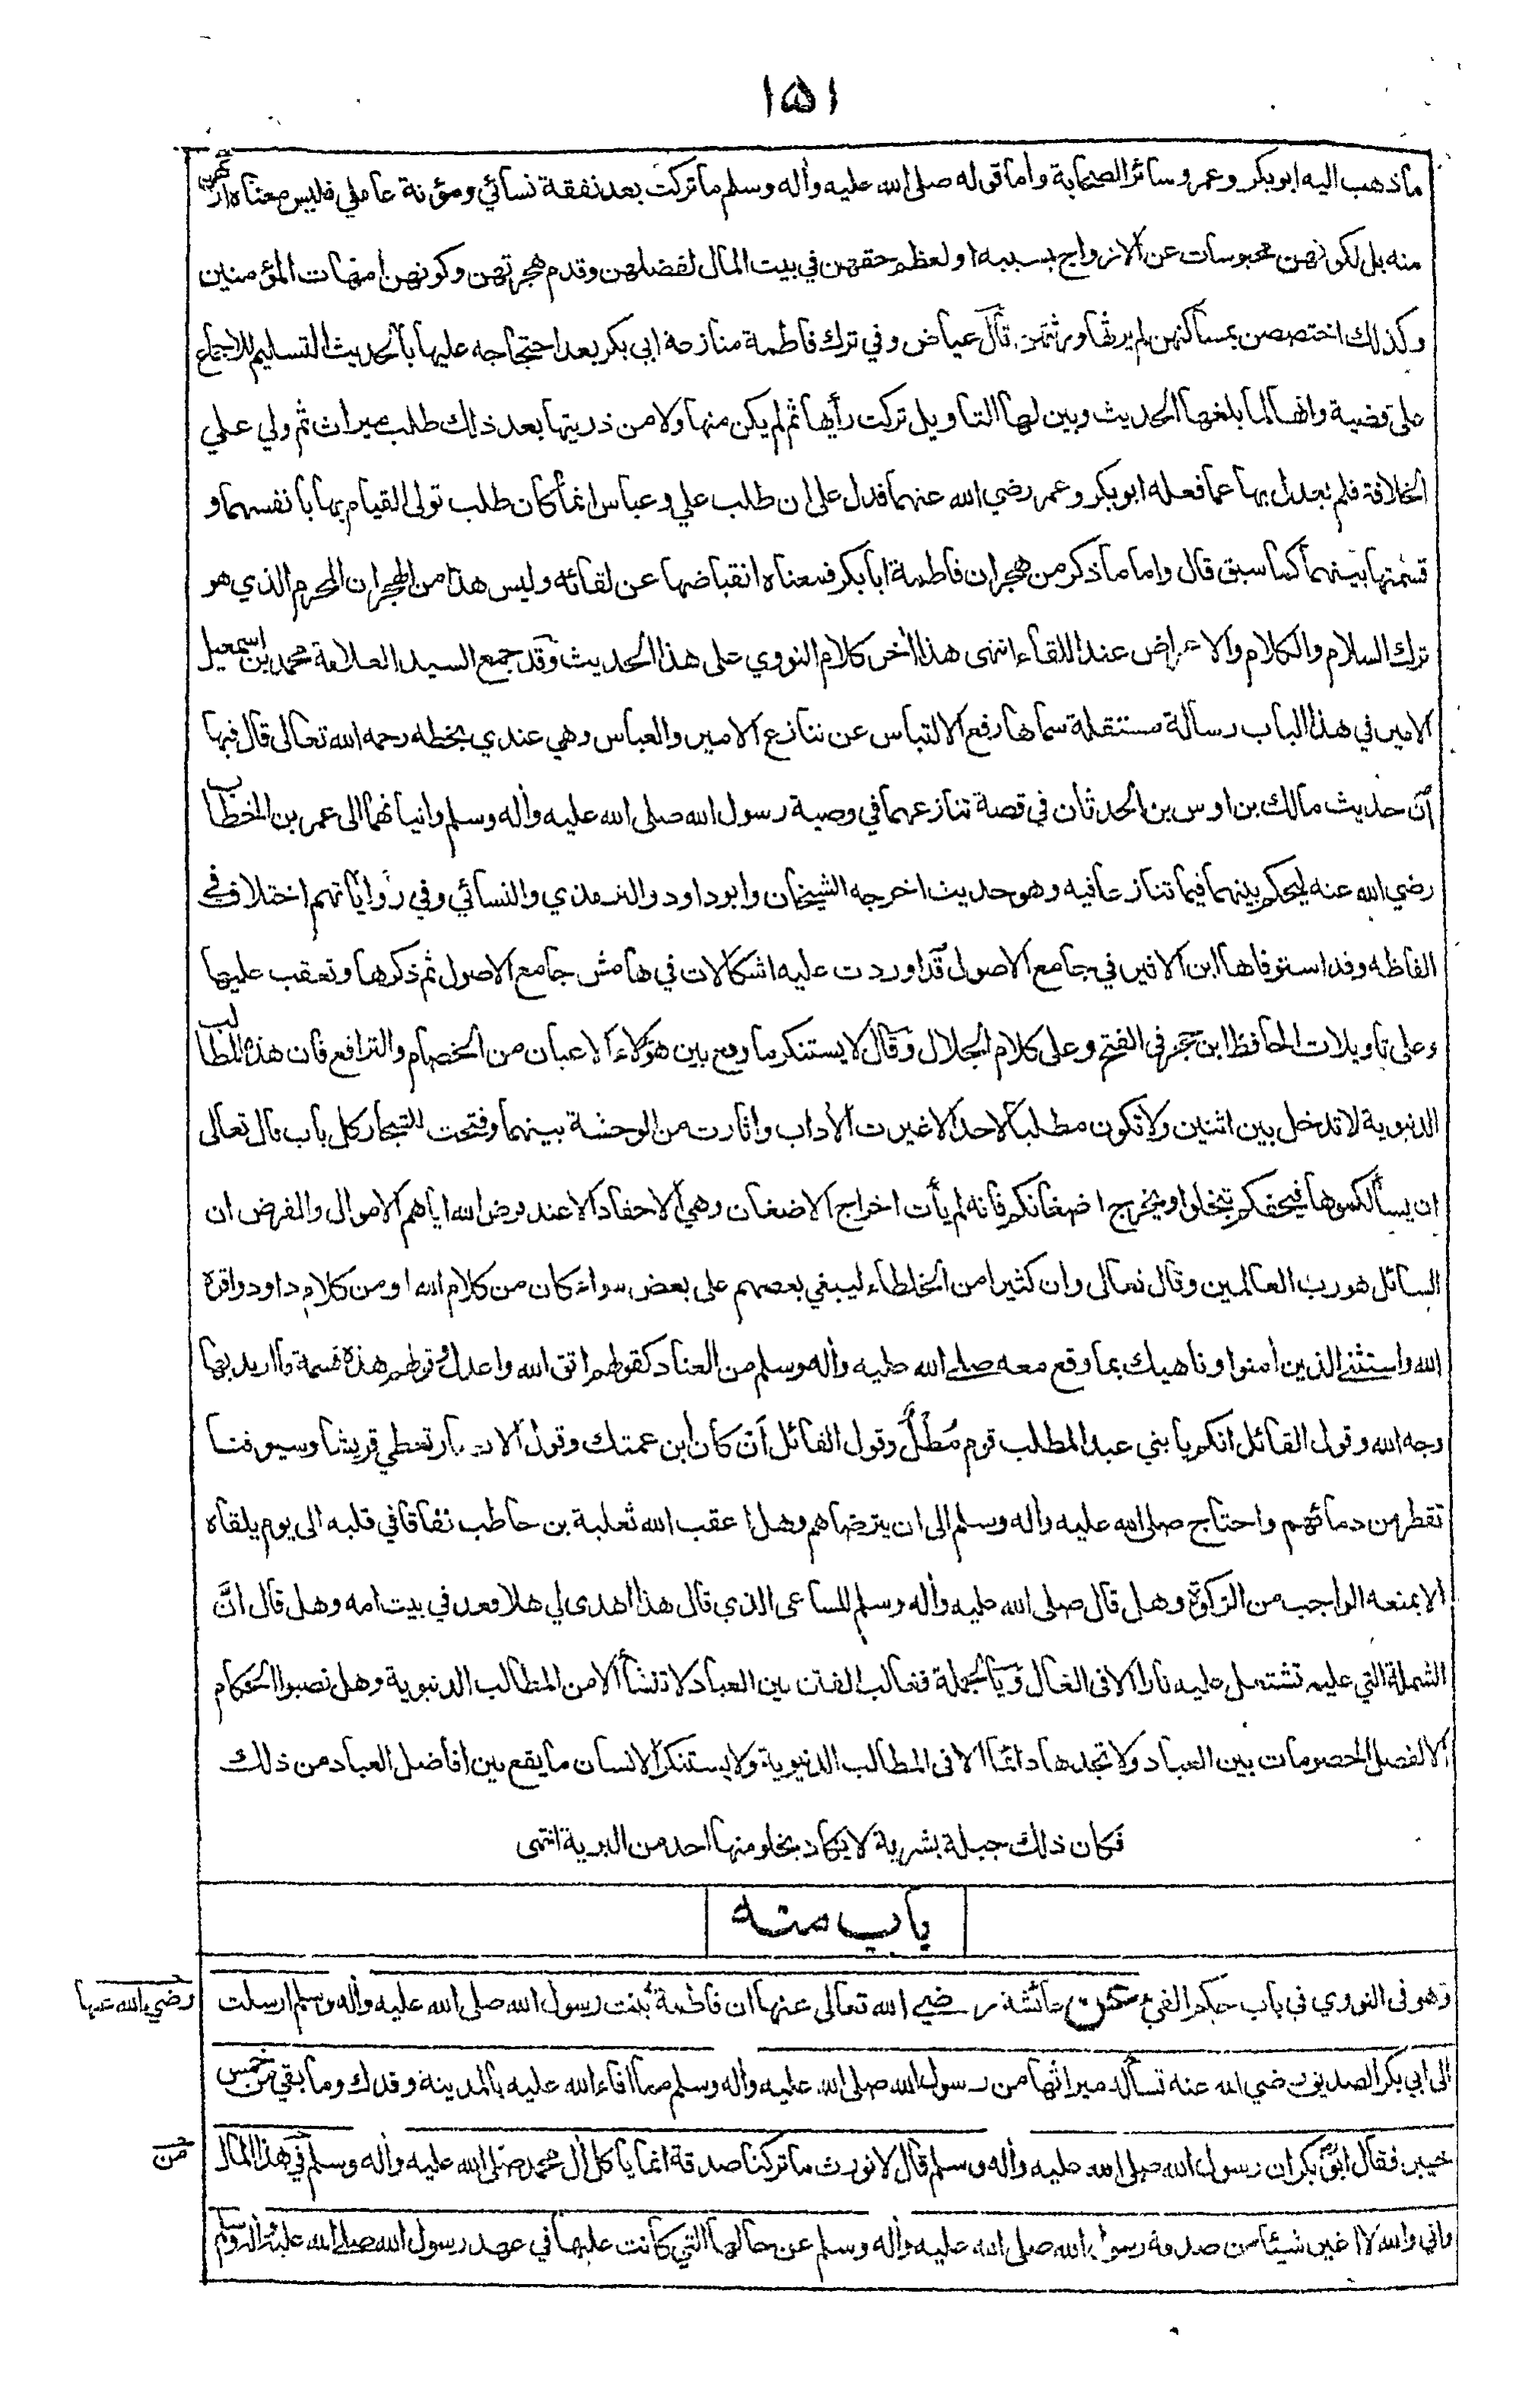 ١٥١
ما ذهب اليه ابوبكر وعمر وسائر الصحابة واما قوله صلى الله عليه وأله وسلم ما تركت بعد نفقة نسائي ومؤنة عاملي فليس معناه ارثهن
منه بل لكونهن محبوسات عن الازواج بسببه او لعظم حقهن في بيت المال لفضلهن وقدم هجرتهن وكونهن امهات المؤمنين
وكذلك اختصصن بمساكنهن لم يرثها ورثتهن قال عياض وفي ترك فاطمة منازعة ابي بكر بعد احتجاجه عليها بالحديث التسليم للاجماع
على قضية وانها لما بلغها الحديث وبين لها التاويل تركت رأيها ثم لم يكن منها ولا من ذريتها بعد ذلك طلب ميراث ثم ولي علي
الخلافة فلم يعدل بها عما فعله ابوبكر وعمر رضي الله عنهما فدل على ان طلب علي وعباس انما كان طلب تولى القيام بها بانفسهما و
قسمتها بينهما كما سبق قال واما ما ذكر من هجران فاطمة ابا بكر فمعناه انقباضها عن لقائه وليس هذا من الهجران المحرم الذي هو
ترك السلام والكلام والاعراض عند اللقاء انتهى هذا أخر كلام النووي على هذا الحديث وقد جمع السيد العلامة محمد بن اسمعيل
الامير في هذا الباب رسالة مستقلة سماها رفع الالتباس عن تنازع الامير والعباس وهي عندي بخطه رحمه الله تعالى قال فيها
أن حديث مالك بن اوس بن الحدثان في قصة تنازعهما في وصية رسول الله صلى الله عليه وأله وسلم واتيانهما الى عمر بن الخطاب
رضي الله عنه ليحكم بينهما فيما تنازعا فيه وهو حديث اخرجه الشيخان وابوداود والترمذي والنسائي وفي رواياتهم اختلاف في
الفاظه وقد استوفاها ابن الاثير في جامع الاصول قد اوردت عليه اشكالات في هامش جامع الاصول ثم ذكرها وتعقب عليها
وعلى تاويلات الحافظ ابن حجر في الفتح وعلى كلام الجلال وقال لا يستنكر ما وقع بين هؤلاء الاعيان من الخصام والترافع فان هذه المطالب
الدنيوية لا تدخل بين اثنين ولا تكون مطلبا لاحد الا غيرت الأداب واثارت من الوحشة بينهما وفتحت للتيجار كل باب قال تعالى
ان يسألكموها فيحفكم تبخلوا ويخرج اضغانكم فانه لم يأت اخراج الاضغان وهي الاحقاد الا عند فرض الله اياهم الاموال والمفرض ان
السائل هو رب العالمين وقال تعالى وان كثيرا من الخلطاء ليبغي بعضهم على بعض سواء كان من كلام الله او من كلام داود واقره
الله واستثنى الذين امنوا وناهيك بما وقع معه صلى الله عليه وأله وسلم من العناد كقولهم اتق الله واعدل وقولهم هذه قسمة ما اريد بها
وجه الله وقول القائل انكم يا بني عبد المطلب قوم مُطلٌ وقول القائل أن كان ابن عمتك وقول الانصار تعطي قريشا وسيوفنا
تقطر من دمائهم واحتاج صلى الله عليه وأله وسلم الى ان يترضاهم وهل اعقب الله ثعلبة بن حاطب نفاقا في قلبه الى يوم يلقاه
الا بمنعه الواجب من الزكوة وهل قال صلى الله عليه وأله وسلم للساعي الذي قال هذا اهدى لي هلا قعد في بيت امه وهل قال انَّ
الشملة التي عليه تشتعل عليه نارا الا في الغال وبالجملة فغالب الفتن بين العباد لا تنشأ الا من المطالب الدنيوية وهل نصبوا الحكام
الا لفصل الخصومات بين العباد ولا تجدها دائما الا في المطالب الدنيوية ولا يستنكر الانسان ما يقع بين افاضل العباد من ذلك
فكان ذلك جبلة بشرية لا يكاد يخلو منها احد من البرية انتهى
باب منه
وهو في النووي في باب حكم الفيء عن عائشة رضي الله تعالى عنها ان فاطمة بنت رسول الله صلى الله عليه وأله وسلم ارسلت
رضي الله عنها
الى ابي بكر الصديق رضي الله عنه تسأله ميراثها من رسول الله صلى الله عليه وأله وسلم مما افاء الله عليه بالمدينة وفدك وما بقي من خمس
خيبر فقال ابو بكر ان رسول الله صلى الله عليه وأله وسلم قال لا نورث ما تركنا صدقة انما ياكل أل محمد صلى الله عليه وأله وسلم في هذا المال
من
واني والله لا اغير شيئا من صدقة رسول الله صلى الله عليه وأله وسلم عن حالها التي كانت عليها في عهد رسول الله صلى الله عليه وأله وسلم